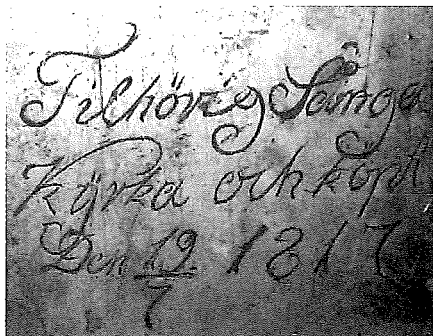 Tilhörig Sånga
Kyrka och köpt
Den 19/7 1817